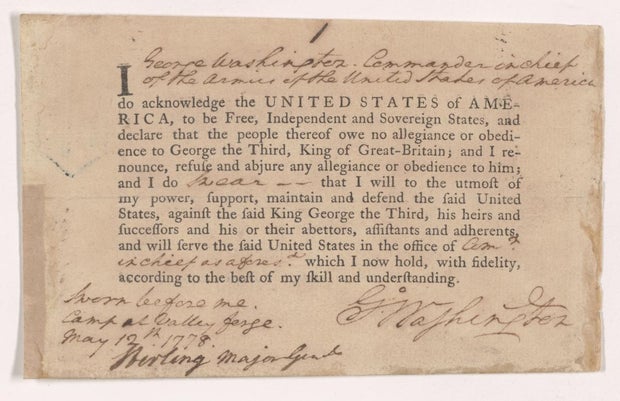 1
George Washington Commander in chief
of the Armies of the United States of America
I do acknowledge the UNITED STATES of AME-
RICA, to be Free, Independent and Sovereign States, and
declare that the people thereof owe no allegiance or obedi-
ence to George the Third, King of Great-Britain; and I re-
nounce, refuſe and abjure any allegiance or obedience to him;
and I do Swear —— that I will to the utmoſt of
my power, ſupport, maintain and defend the ſaid United
States, againſt the ſaid King George the Third, his heirs and
ſucceſſors and his or their abettors, aſſiſtants and adherents,
and will ſerve the ſaid United States in the office of Comr.
in chief as aforesd. which I now hold, with fidelity,
according to the beſt of my ſkill and underſtanding.
Sworn before me.
Camp at Valley forge.
May 12th. 1778.
Stirling Major Genl
Go Washington